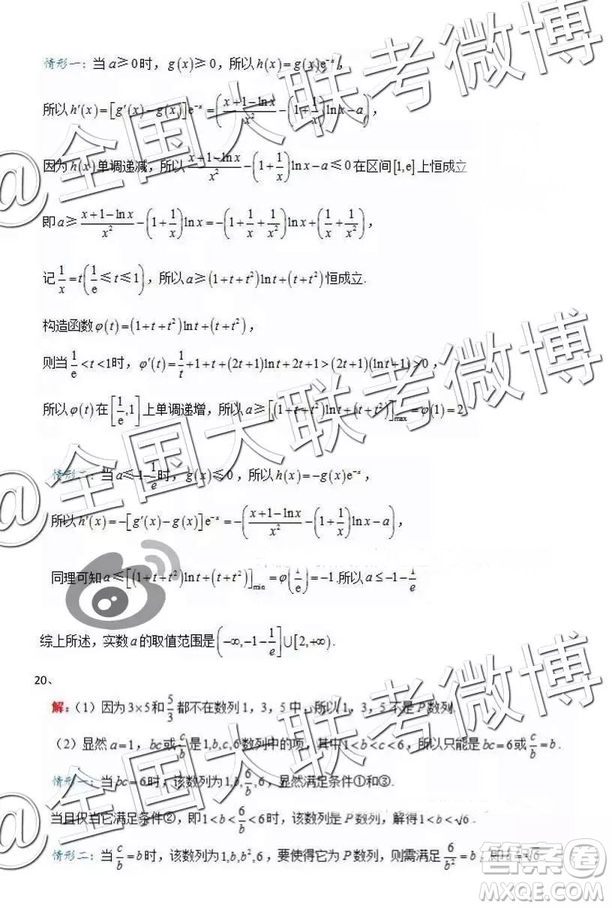 情形一：当 a≥0时，g(x)≥0，所以 h(x)=g(x)e^{-x}，
所以 h'(x)=[g'(x)-g(x)]e^{-x}=((x+1-lnx)/x²-(1+1/x)lnx-a)，
因为 h(x)单调递减，所以 (x+1-lnx)/x²-(1+1/x)lnx-a≤0 在区间[1,e]上恒成立
即 a≥(x+1-lnx)/x²-(1+1/x)lnx=-(1+1/x+1/x²)lnx+(1/x+1/x²)，
记 1/x=t(1/e≤t≤1)，所以 a≥(1+t+t²)lnt+(t+t²)恒成立.
构造函数 φ(t)=(1+t+t²)lnt+(t+t²)，
则当 1/e<t<1时，φ'(t)=1/t+1+t+(2t+1)lnt+2t+1>(2t+1)(lnt+1)>0，
所以 φ(t)在[1/e,1]上单调递增，所以 a≥[(1+t+t²)lnt+(t+t²)]_{max}=φ(1)=2
情形二：当 a≤-1-1/e时，g(x)≤0，所以 h(x)=-g(x)e^{-x}，
所以 h'(x)=-[g'(x)-g(x)]e^{-x}=-((x+1-lnx)/x²-(1+1/x)lnx-a)，
同理可知 a≤[(1+t+t²)lnt+(t+t²)]_{min}=φ(1/e)=-1.所以 a≤-1-1/e
综上所述，实数a的取值范围是(-∞,-1-1/e]∪[2,+∞).
20、
解：（1）因为3×5和5/3都不在数列1，3，5中，所以1，3，5不是P数列
（2）显然 a=1，bc或c/b是1,b,c,6数列中的项，其中1<b<c<6，所以只能是bc=6或c/b=b.
情形一：当 bc=6时，该数列为1,b,6/b,6，显然满足条件①和③.
当且仅当它满足条件②，即1<b<6/b<6时，该数列是P数列，解得1<b<√6.
情形二：当c/b=b时，该数列为1,b,b²,6，要使得它为P数列，则需满足6/b²=b，即b=∛6
@全国大联考微博
@全国大联考微博
@全国大联考微博
答案卷
MXQE.COM